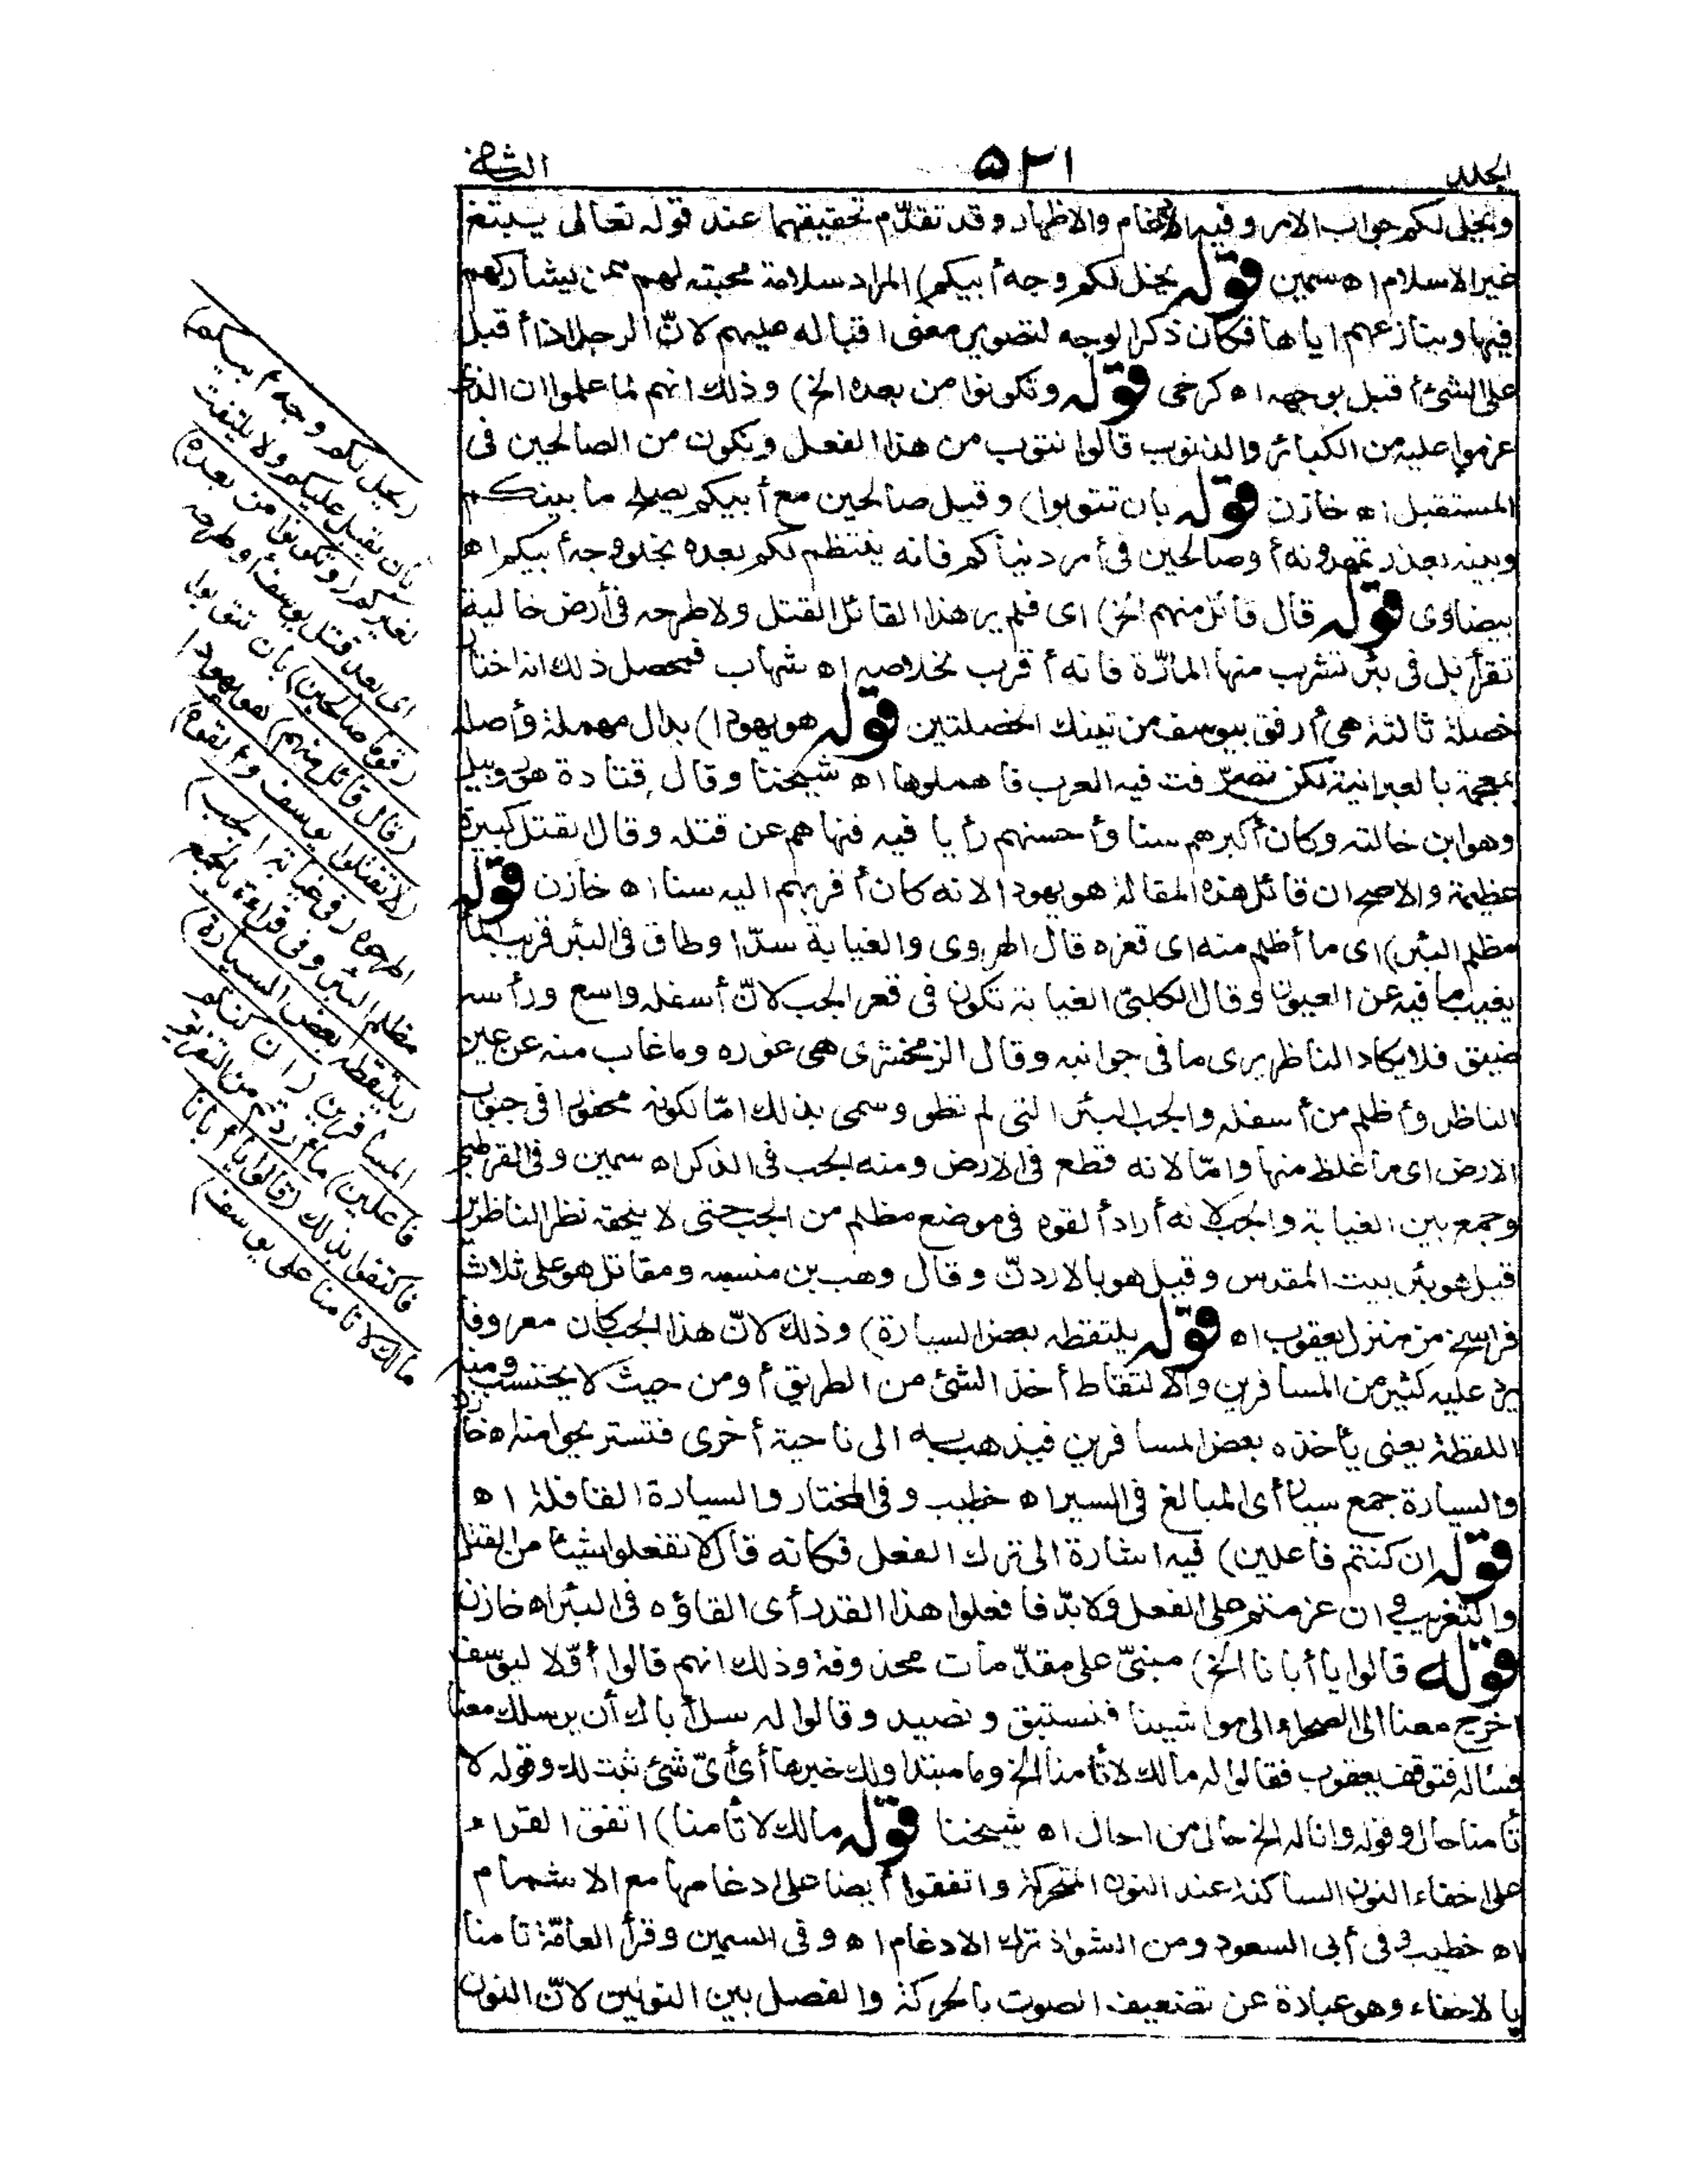 الجلد
٥٢١
الثانی
ويخل لكم جواب الامر وفيه الادغام والاظهار وقد تقدّم تحقيقهما عند قوله تعالى يبتغ
غير الاسلام اه سمين قوله يخل لكم وجه أبيكم) المراد سلامة محبته لهم ممن يشاركهم
فيها وينازعهم اياها فكان ذكر الوجه لتصوير معنى اقباله عليهم لانّ الرجل اذا أقبل
على الشئ أقبل بوجهه اه كرخى قوله وتكونوا من بعده الخ) وذلك انهم لما علموا ان الذى
عزموا عليه من الكبائر والذنوب قالوا نتوب من هذا الفعل ونكون من الصالحين فى
المستقبل اه خازن قوله بان تتوبوا) وقيل صالحين مع أبيكم يصلح ما بينكم
وبينه بعذر تمهدونه أو صالحين فى أمر دنياكم فانه ينتظم لكم بعده بخلو وجه أبيكم اه
بيضاوى قوله قال قائل منهم الخ) اى فلم ير هذا القائل القتل ولا طرحه فى أرض خالية
تقرأ بل فى بئر تشرب منها المارّة فانه أقرب لخلاصه اه شهاب فمحصل ذلك انه اختار
خصلة ثالثة هى أرفق بيوسف من تينك الخصلتين قوله هو يهودا) بدال مهملة وأصله
بمعجمة بالعبرانية لكن تصرّفت فيه العرب فاهملوها اه شيخنا وقال قتادة هو روبيل
وهو ابن خالته وكان أكبرهم سنا وأحسنهم رأيا فيه فنهاهم عن قتله وقال القتل كبيرة
عظيمة والاصح ان قائل هذه المقالة هو يهودا لانه كان أقربهم اليه سنا اه خازن قوله
مظلم البئر) اى ما أظلم منه اى قعره قال الهروى والغيابة سدّ او طاق فى البئر قريب الماء
يغيب ما فيه عن العيون وقال الكلبىّ الغيابة تكون فى قعر الجب لانّ أسفله واسع ورأسه
ضيق فلا يكاد الناظر يرى ما فى جوانبه وقال الزمخشرى هى غوره وما غاب منه عن عين
الناظر وأظلم من أسفله والجب البئر التى لم تطو وسمى بذلك امّا لكونه محفورا فى جبوب
الارض اى ما غلظ منها وامّا لانه قطع فى الارض ومنه الجب فى الذكر اه سمين وفى القرطبى
وجمع بين الغيابة والجب لانه أراد ألقوه فى موضع مظلم من الجب حتى لا يلحقه نظر الناظرين
قيل هو بئر بيت المقدس وقيل هو بالاردنّ وقال وهب بن منبه ومقاتل هو على ثلاث
فراسخ من منزل يعقوب اه قوله يلتقطه بعض السيارة) وذلك لانّ هذا الجب كان معروفا
يرد عليه كثير من المسافرين والالتقاط أخذ الشئ من الطريق أو من حيث لا يحتسب ومنه
اللقطة يعنى يأخذه بعض المسافرين فيذهب به الى ناحية أخرى فتستريحوا منه اه خازن
والسيارة جمع سيار أى المبالغ فى السير اه خطيب وفى المختار والسيارة القافلة اه
قوله ان كنتم فاعلين) فيه اشارة الى ترك الفعل فكانه قال لا تفعلوا شيئا من القتل
والتغريب وان عزمتم على الفعل ولا بدّ فافعلوا هذا القدر أى القاؤه فى البئر اه خازن
قوله قالوا يا أبانا الخ) مبنىّ على مقدّمات محذوفة وذلك انهم قالوا أوّلا ليوسف
اخرج معنا الى الصحراء والى مواشينا فنستبق ونصيد وقالوا له سل أباك أن يرسلك معنا
فسأله فتوقف يعقوب فقالوا له مالك لا تأمنا الخ وما مبتدا ولك خبرها أى أىّ شئ ثبت لك وقوله لا
تأمنا حال وقوله وانا له الخ حال من احال اه شيخنا قوله مالك لا تأمنا) اتفق القراء
على اخفاء النون الساكنة عند النون المتحركة واتفقوا أيضا على ادغامها مع الاشمام
اه خطيب وفى أبى السعود ومن الشواذ ترك الادغام اه وفى السمين وقرأ العامّة تامنا
بالاخفاء وهو عبارة عن تضعيف الصوت بالحركة والفصل بين النونين لانّ النون
(يخل لكم وجه أبيكم)
بأن يقبل عليكم ولا يلتفت
لغيركم (وتكونوا من بعده)
اى بعد قتل يوسف أو طرحه
(قوما صالحين) بان تتوبوا
(قال قائل منهم) هو يهودا
(لا تقتلوا يوسف وألقوه)
اطرحوه (فى غيابة الجب)
مظلم البئر وفى قراءة بالجمع
(يلتقطه بعض السيارة)
المسافرين (ان كنتم
فاعلين) ما أردتم من التفريق
فاكتفوا بذلك (قالوا يا أبانا
مالك لا تامنا على يوسف)